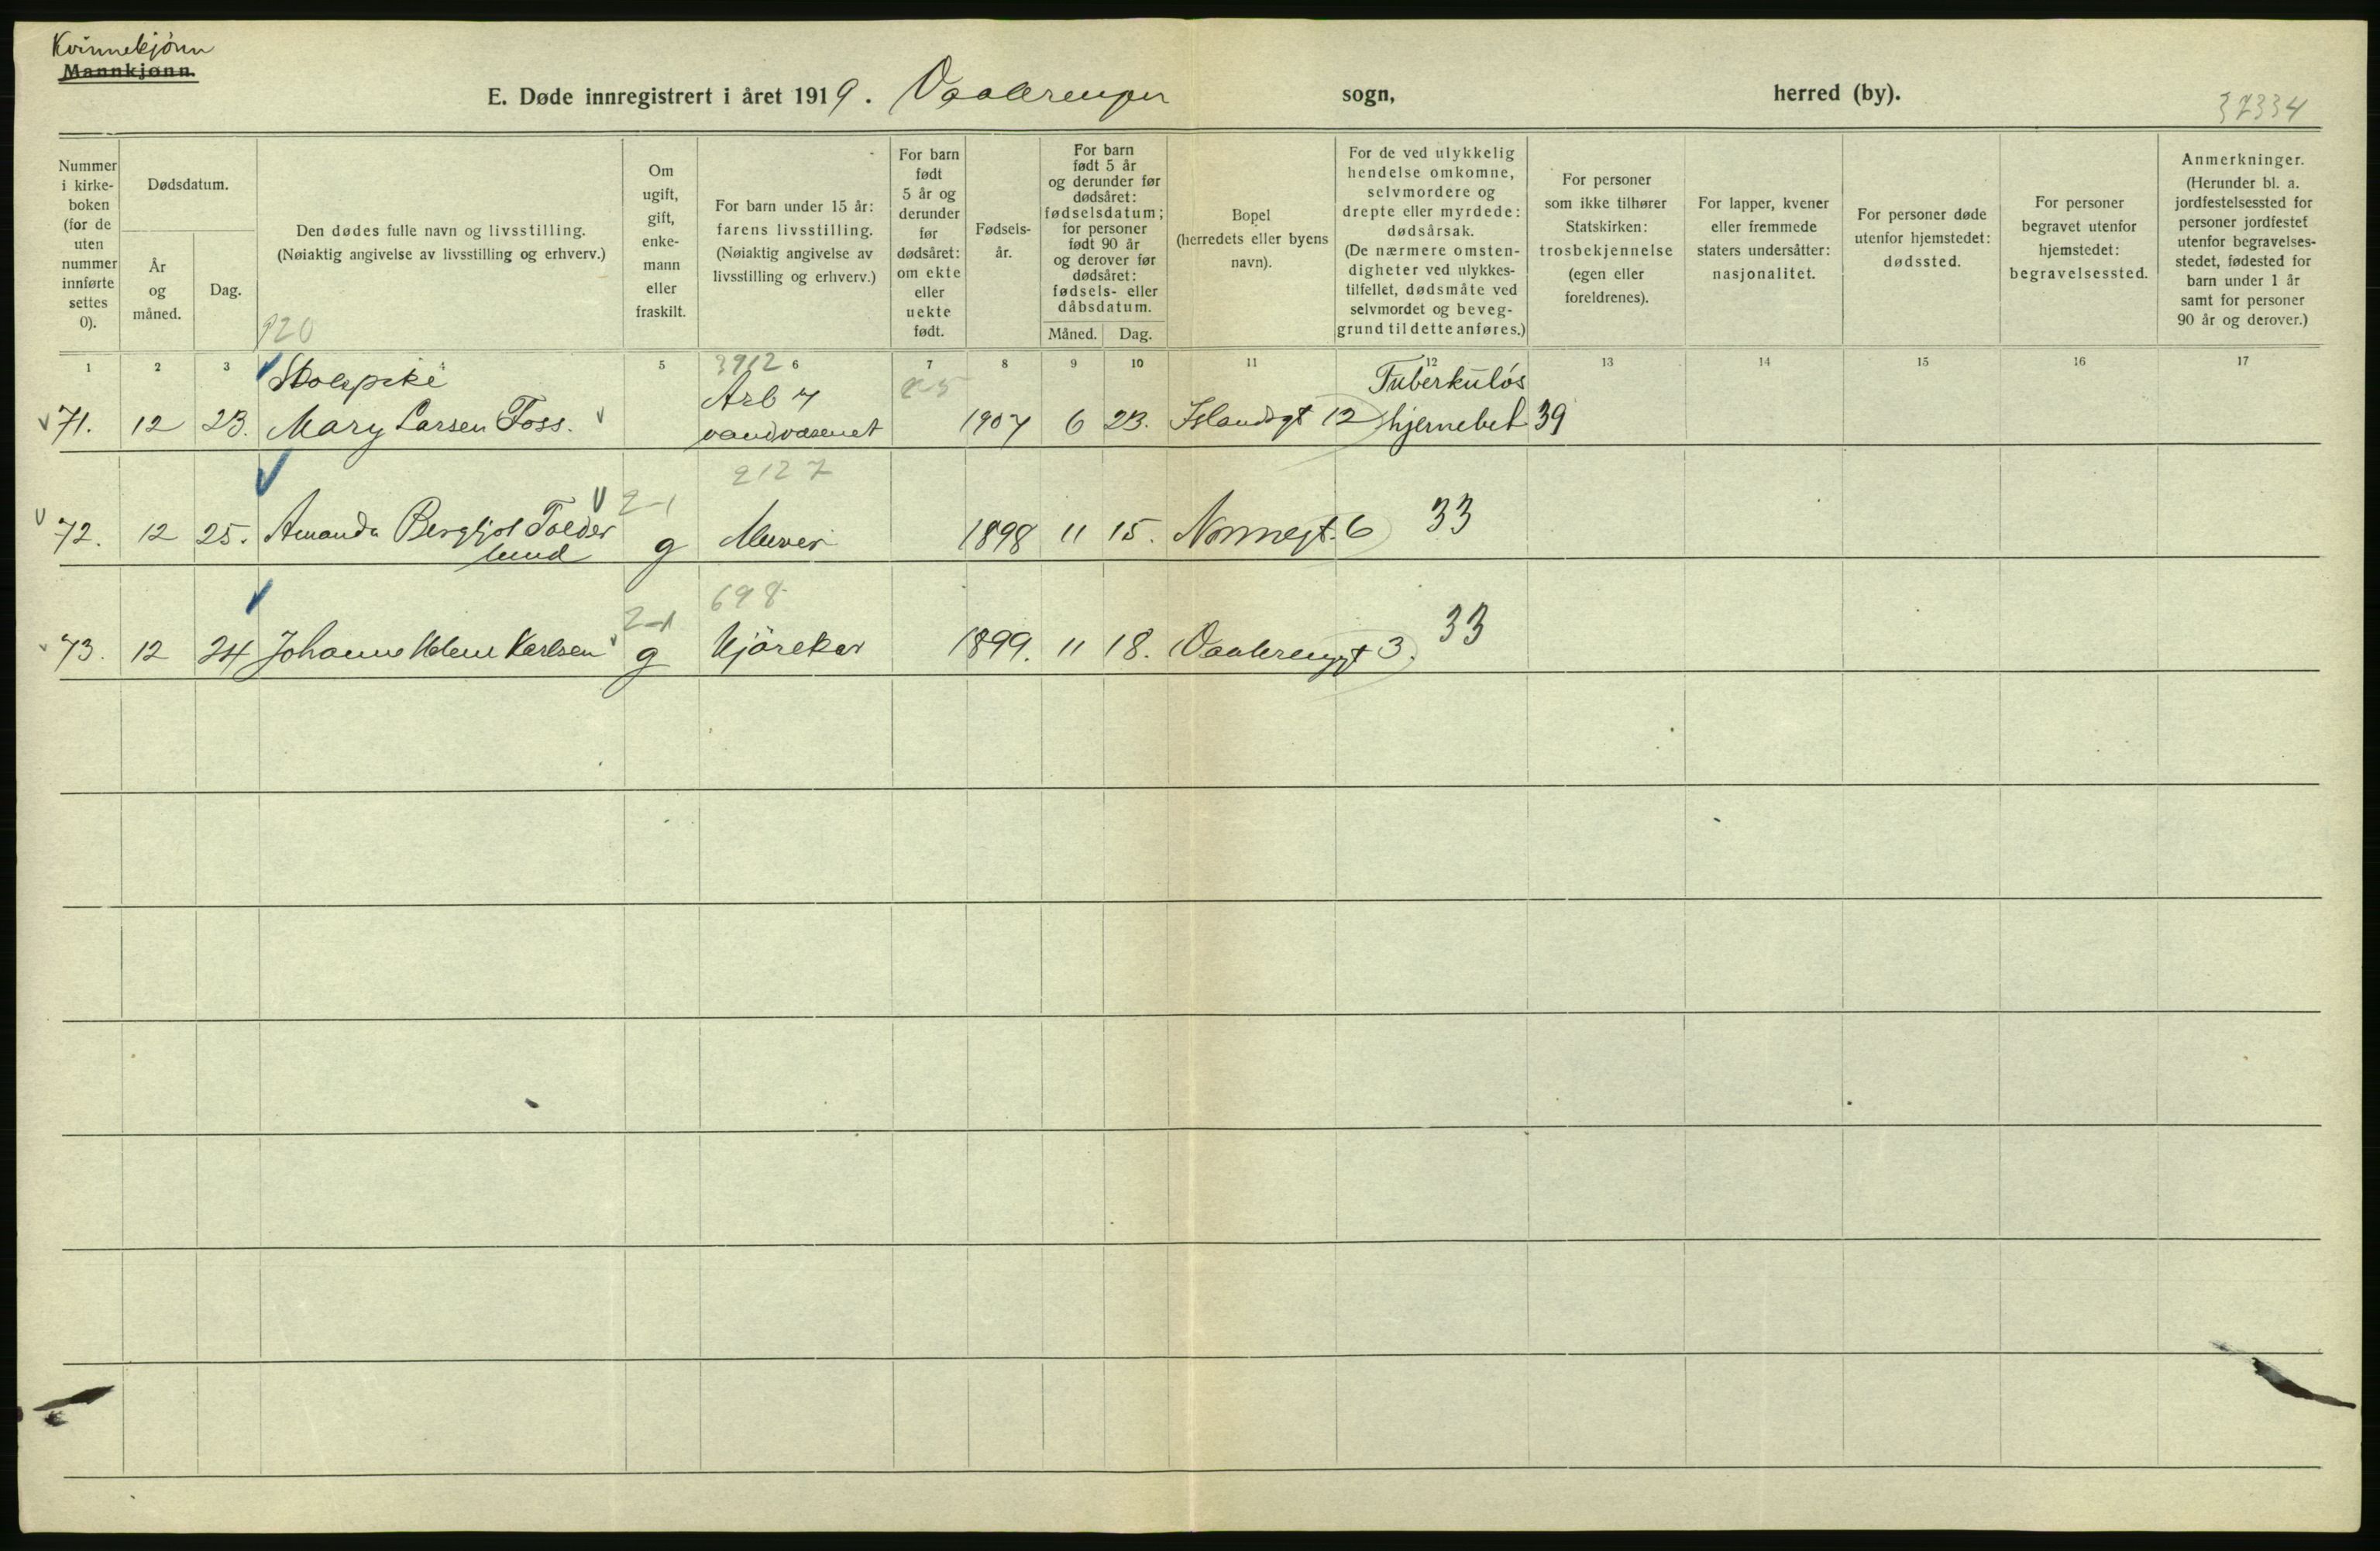 Kvinnekjönn
Mannkjønn.
E. Døde innregistrert i året 1919. Vaalerengen sogn, herred (by).
37334
Nummer i kirkeboken (for de uten nummer innførte settes 0).
Dødsdatum.
År og måned.
Dag.
Den dødes fulle navn og livsstilling.
(Nøiaktig angivelse av livsstilling og erhverv.)
920
Om ugift, gift, enkemann eller fraskilt.
For barn under 15 år: farens livsstilling.
(Nøiaktig angivelse av livsstilling og erhverv.)
For barn født 5 år og derunder før dødsåret: om ekte eller uekte født.
Fødselsår.
For barn født 5 år og derunder før dødsåret: fødselsdatum; for personer født 90 år og derover før dødsåret: fødsels- eller dåbsdatum.
Måned. Dag.
Bopel
(herredets eller byens navn).
For de ved ulykkelig hendelse omkomne, selvmordere og drepte eller myrdede: dødsårsak.
(De nærmere omstendigheter ved ulykkestilfellet, dødsmåte ved selvmordet og beveggrund til dette anføres.)
For personer som ikke tilhører Statskirken: trosbekjennelse (egen eller foreldrenes).
For lapper, kvener eller fremmede staters undersåtter: nasjonalitet.
For personer døde utenfor hjemstedet: dødssted.
For personer begravet utenfor hjemstedet: begravelsessted.
Anmerkninger.
(Herunder bl. a. jordfestelsessted for personer jordfestet utenfor begravelsesstedet, fødested for barn under 1 år samt for personer 90 år og derover.)
1 2 3 5 6 7 8 9 10 11 12 13 14 15 16 17
Skolepike 3912 Tuberkuløs
71. 12 23. Mary Larsen Foss. Arb v vandvæsenet 1907 6 23. Islandsgt 12 hjernebet 39
2127
72. 12 25. Amanda Bergljot Tolder 2-1 g Murer 1898 11 15. Normgt. 6 33
lund
698
73. 12 24 Johanne Helene Karlsen 2-1 g Kjörekar 1899. 11 18. Vaalerenggt 3. 33